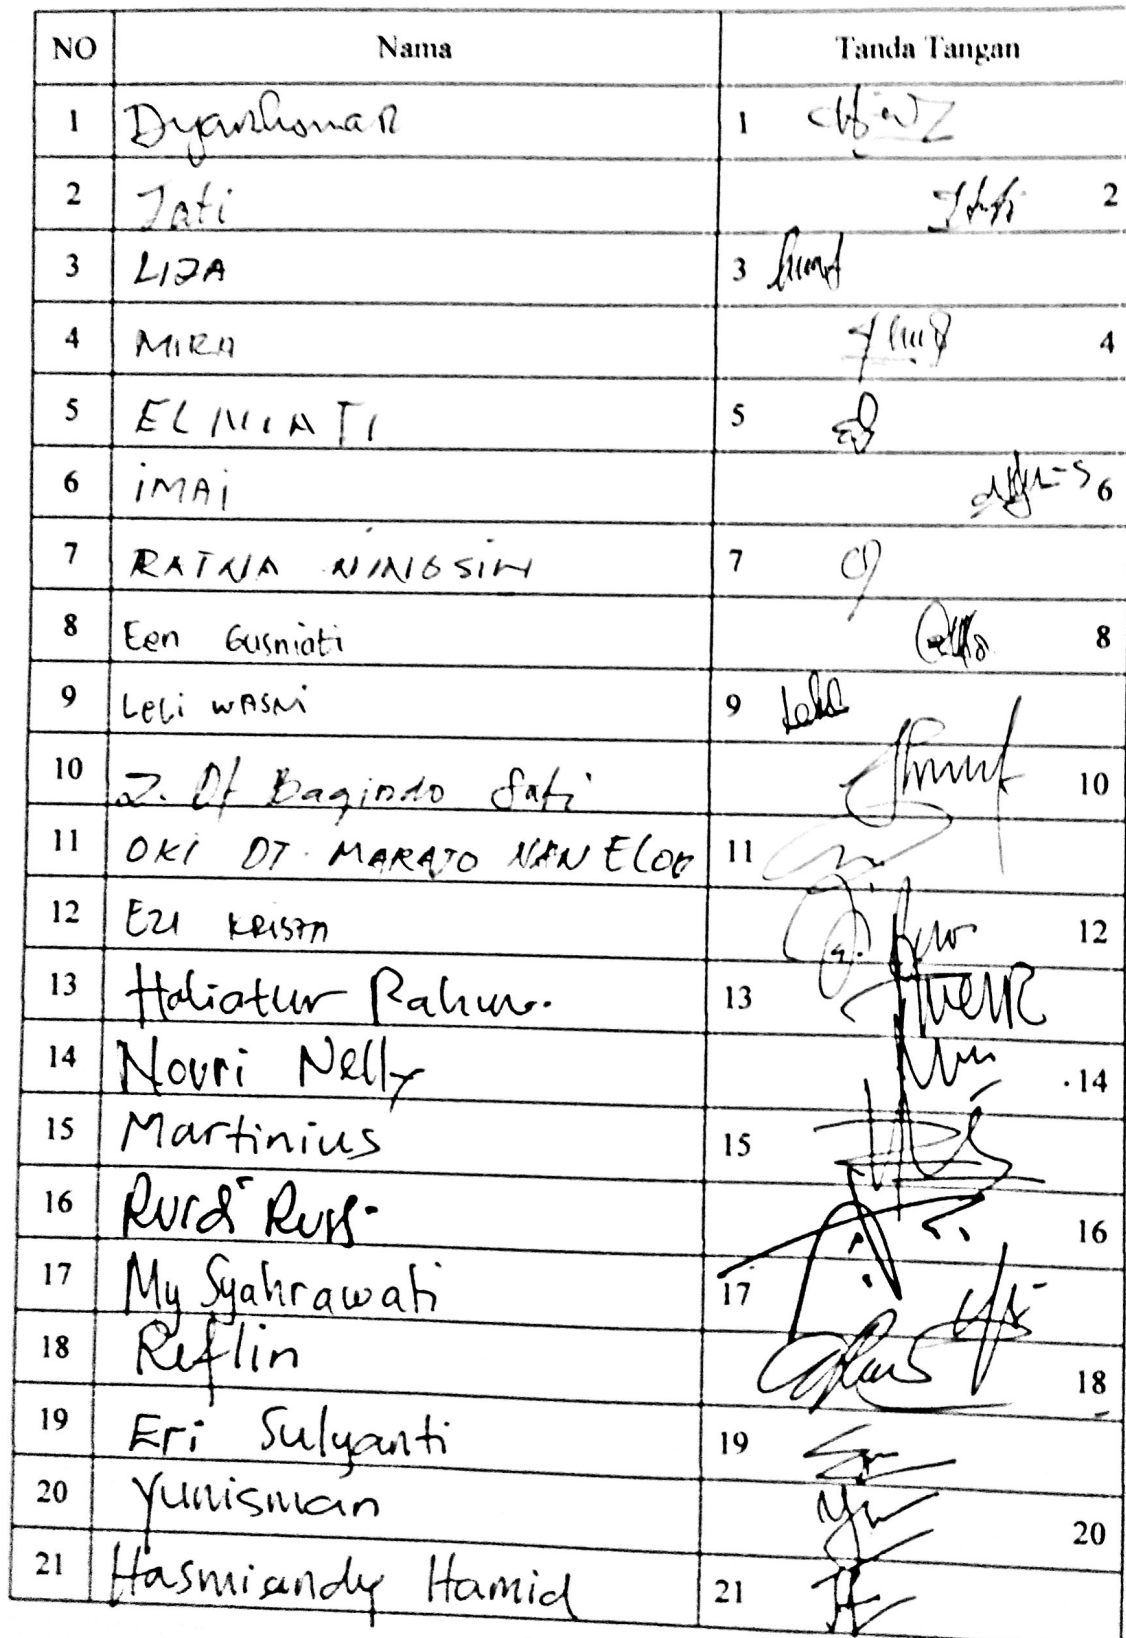 NO Nama Tanda Tangan
1 Dyanhomar 1
2 Tati 2
3 LIZA 3
4 MIRA 4
5 ELMIATI 5
6 iMAi 6
7 RATNA NINGSIH 7
8 Een Gusniati 8
9 Leli WASNi 9
10 Z. Dt Bagindo Sati 10
11 OKI DT. MARAJO NAN ELOK 11
12 EZI KRISTA 12
13 Haliatur Rahm. 13
14 Novri Nelly 14
15 Martinius 15
16 16
17 My Syahrawati 17
18 Reflin 18
19 Eri Sulyanti 19
20 Yunisman 20
21 Hasmiandy Hamid 21